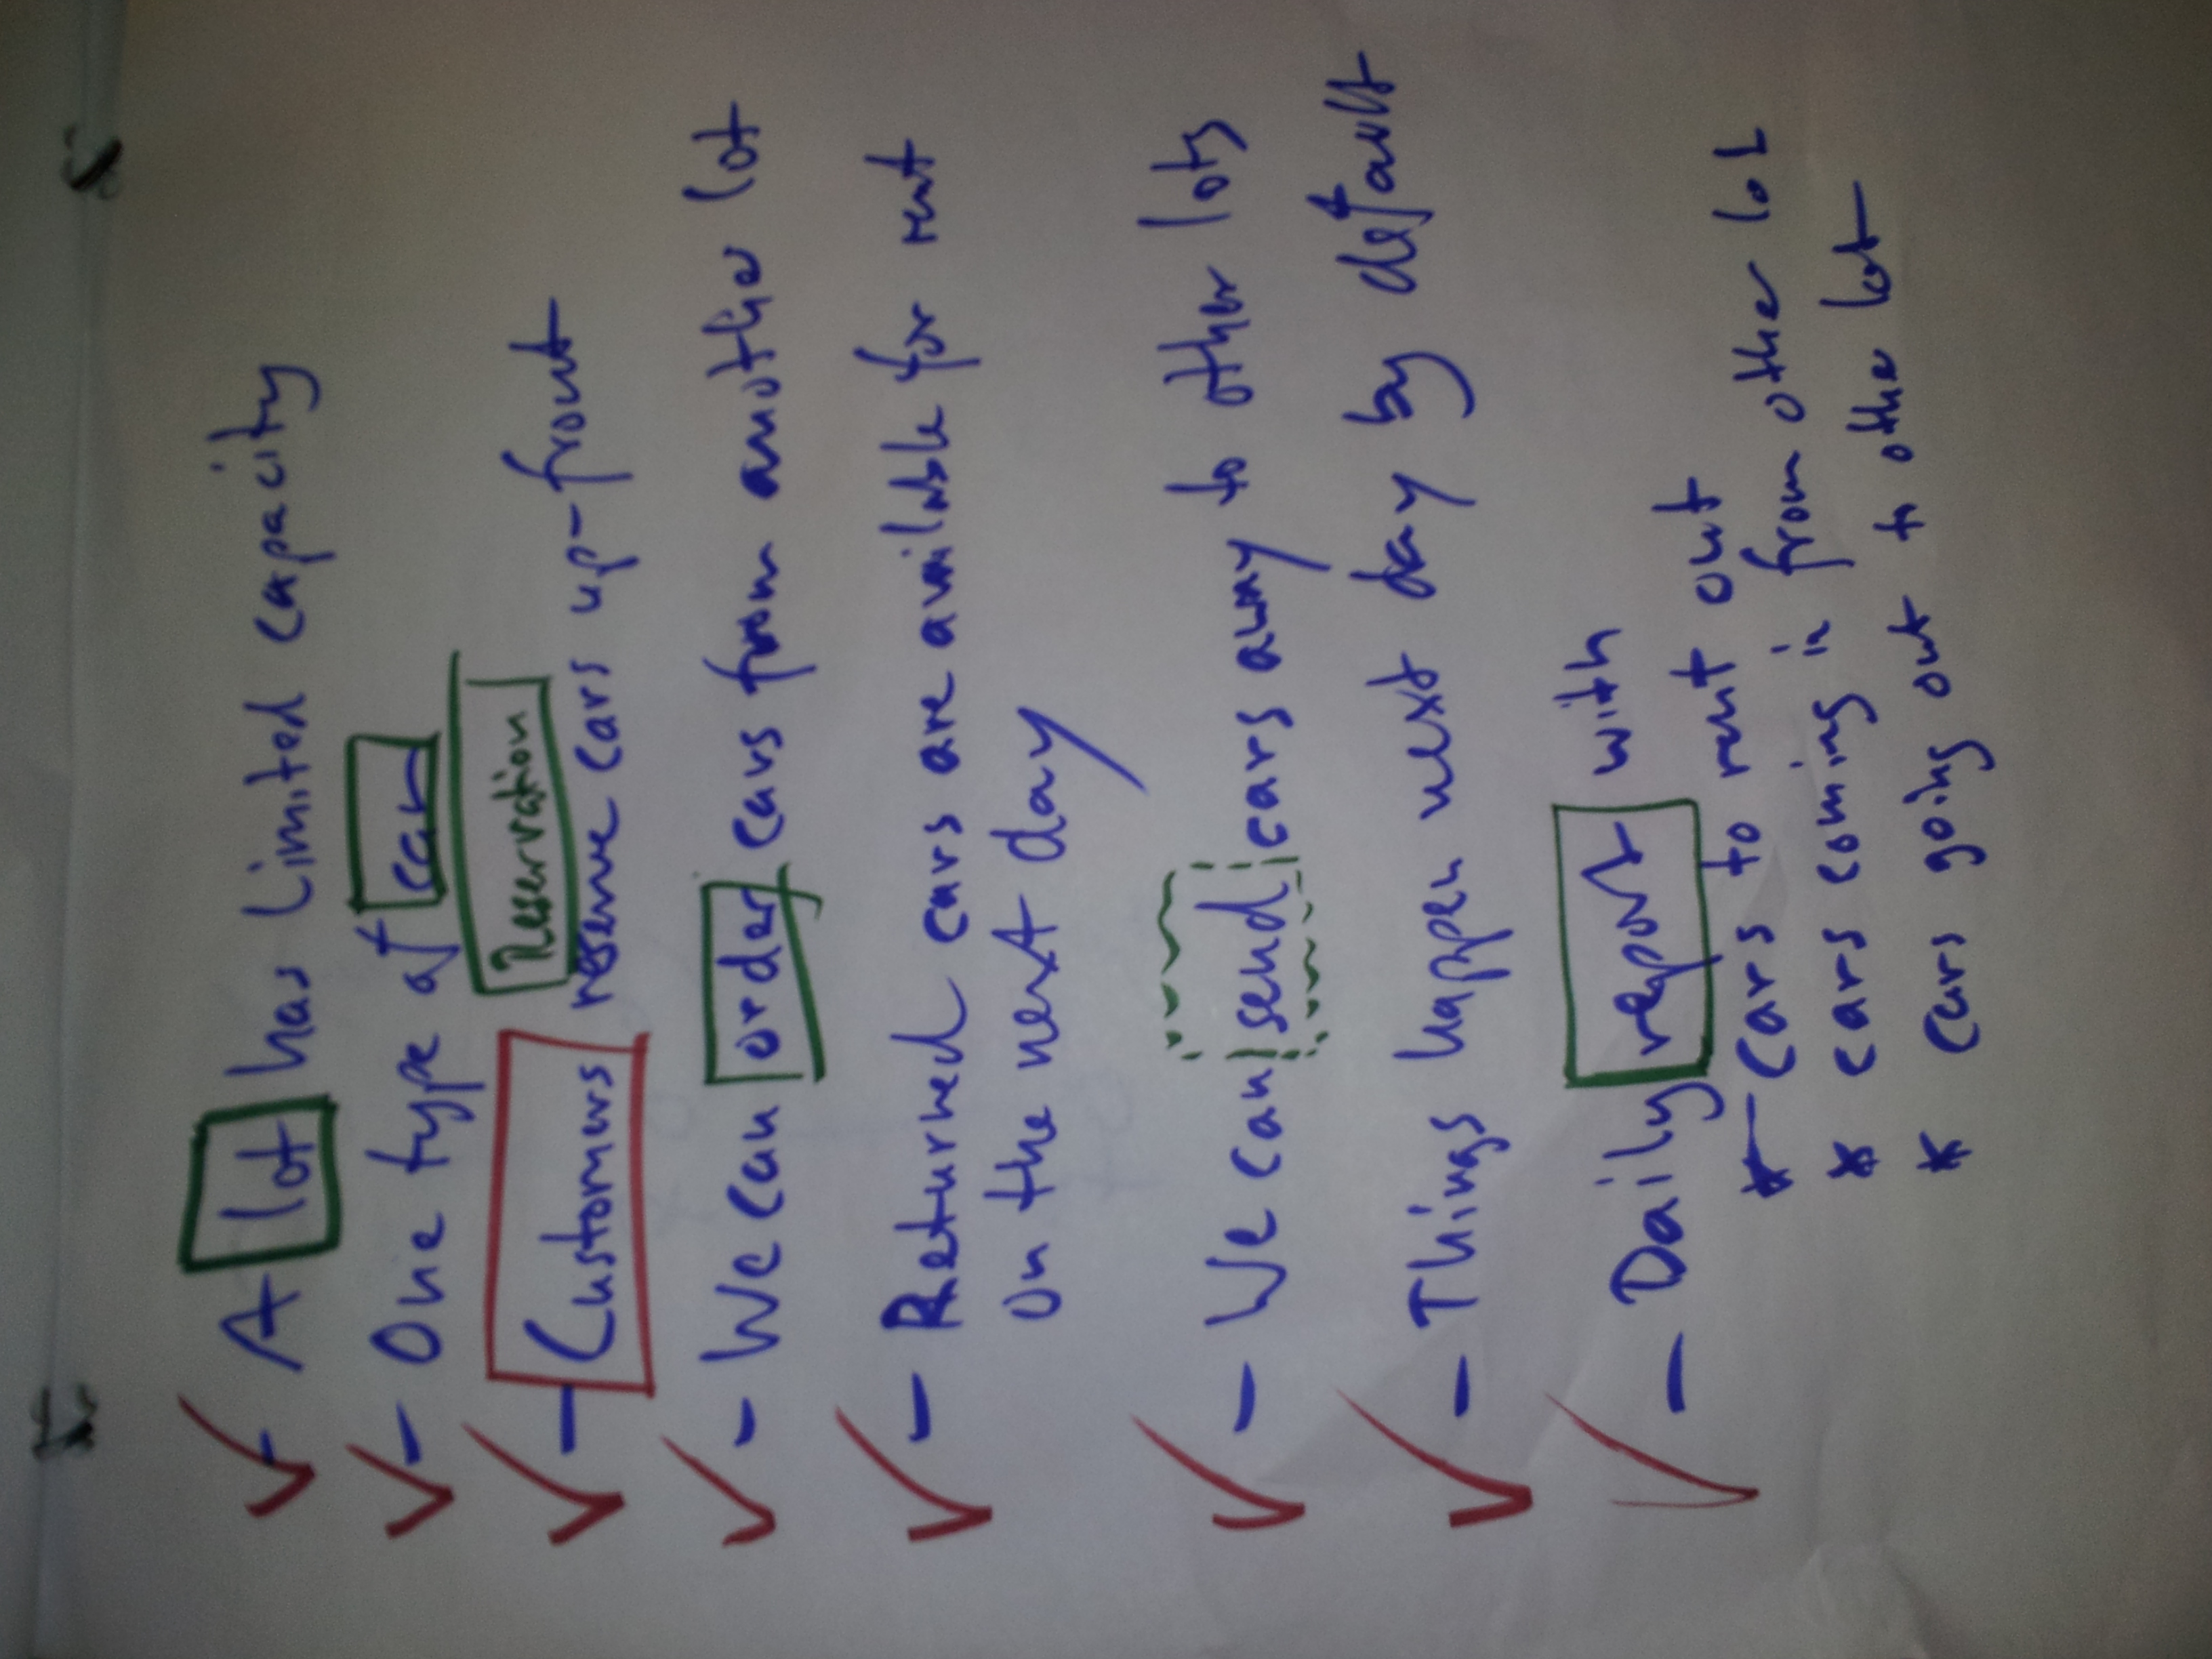 - A lot has limited capacity
- One type of car
Reservation
- Customers reserve cars up-front
- We can order cars from another lot
- Returned cars are available for rent
on the next day
- We can send cars away to other lots
- Things happen next day by default
- Daily report with
* cars to rent out
* cars coming in from other lot
* cars going out to other lot